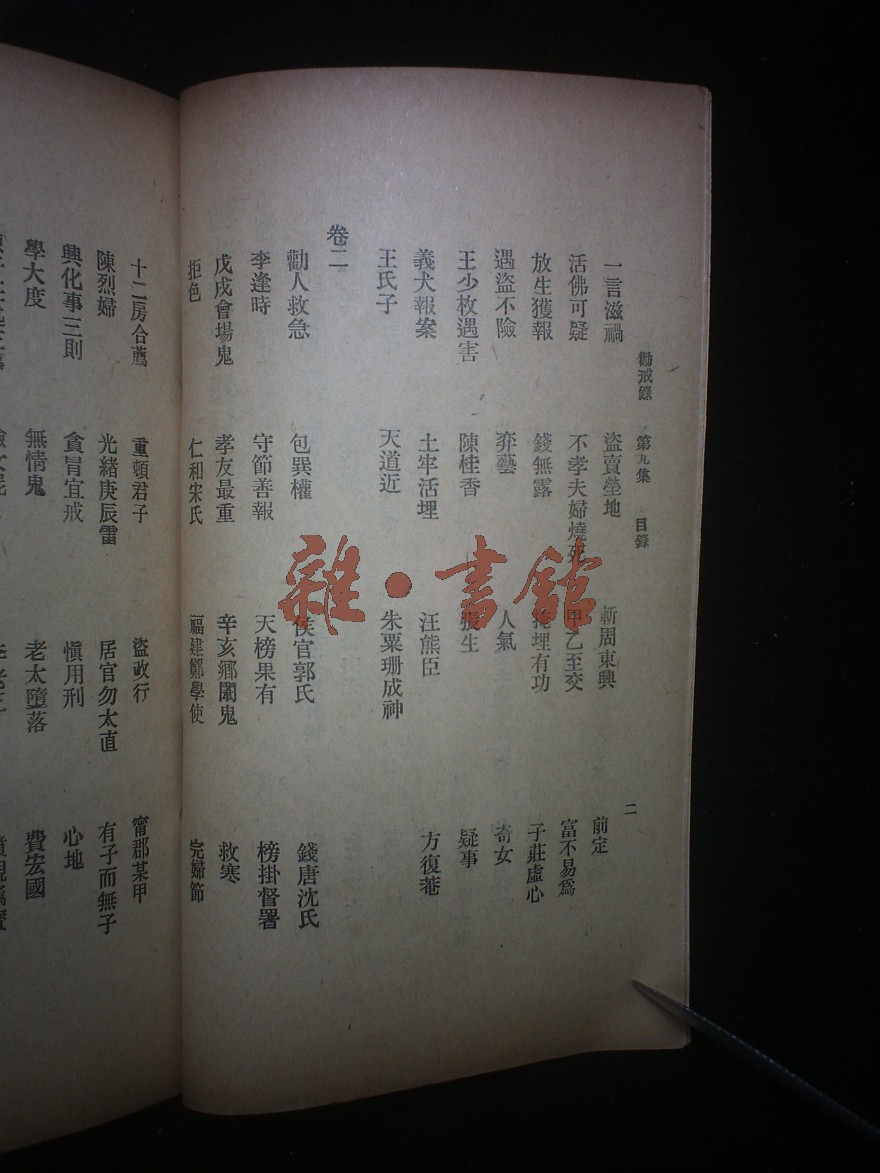 勸戒錄 第九集 目錄 二
一言滋禍 盜賣塋地 斬周東興 前定
活佛可疑 不孝夫婦燒死 甲乙至交 富不易爲
放生獲報 錢無露 掩埋有功 子莊虛心
遇盜不險 弈藝 人氣 奇女
王少枚遇害 陳桂香 張生 疑事
義犬報案 土牢活埋 汪熊臣 方復菴
王氏子 天道近 朱粟珊成神
卷二
勸人救急 包巽權 侯官郭氏 錢唐沈氏
李逢時 守節善報 天榜果有 榜掛督署
戊戌會場鬼 孝友最重 辛亥鄉闈鬼 救寒
拒色 仁和宋氏 福建鄭學使 完婦節
十二房合薦 重頓君子 盜改行 甯郡某甲
陳烈婦 光緒庚辰雷 居官勿太直 有子而無子
興化事三則 貪冒宜戒 愼用刑 心地
學大度 無情鬼 老太墮落 費宏國
雜·書館